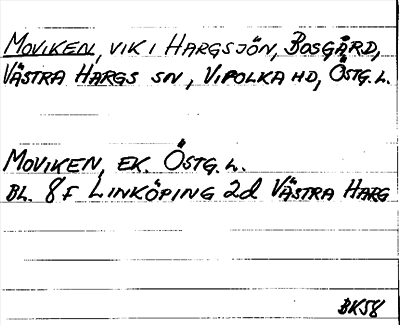 MOVIKEN, VIK I HARGSJÖN, BOSGÅRD,
VÄSTRA HARGS SN, VIPOLKA HD, ÖSTG. L.
MOVIKEN, EK. ÖSTG. L.
BL. 8F LINKÖPING 2d VÄSTRA HARG
BK58